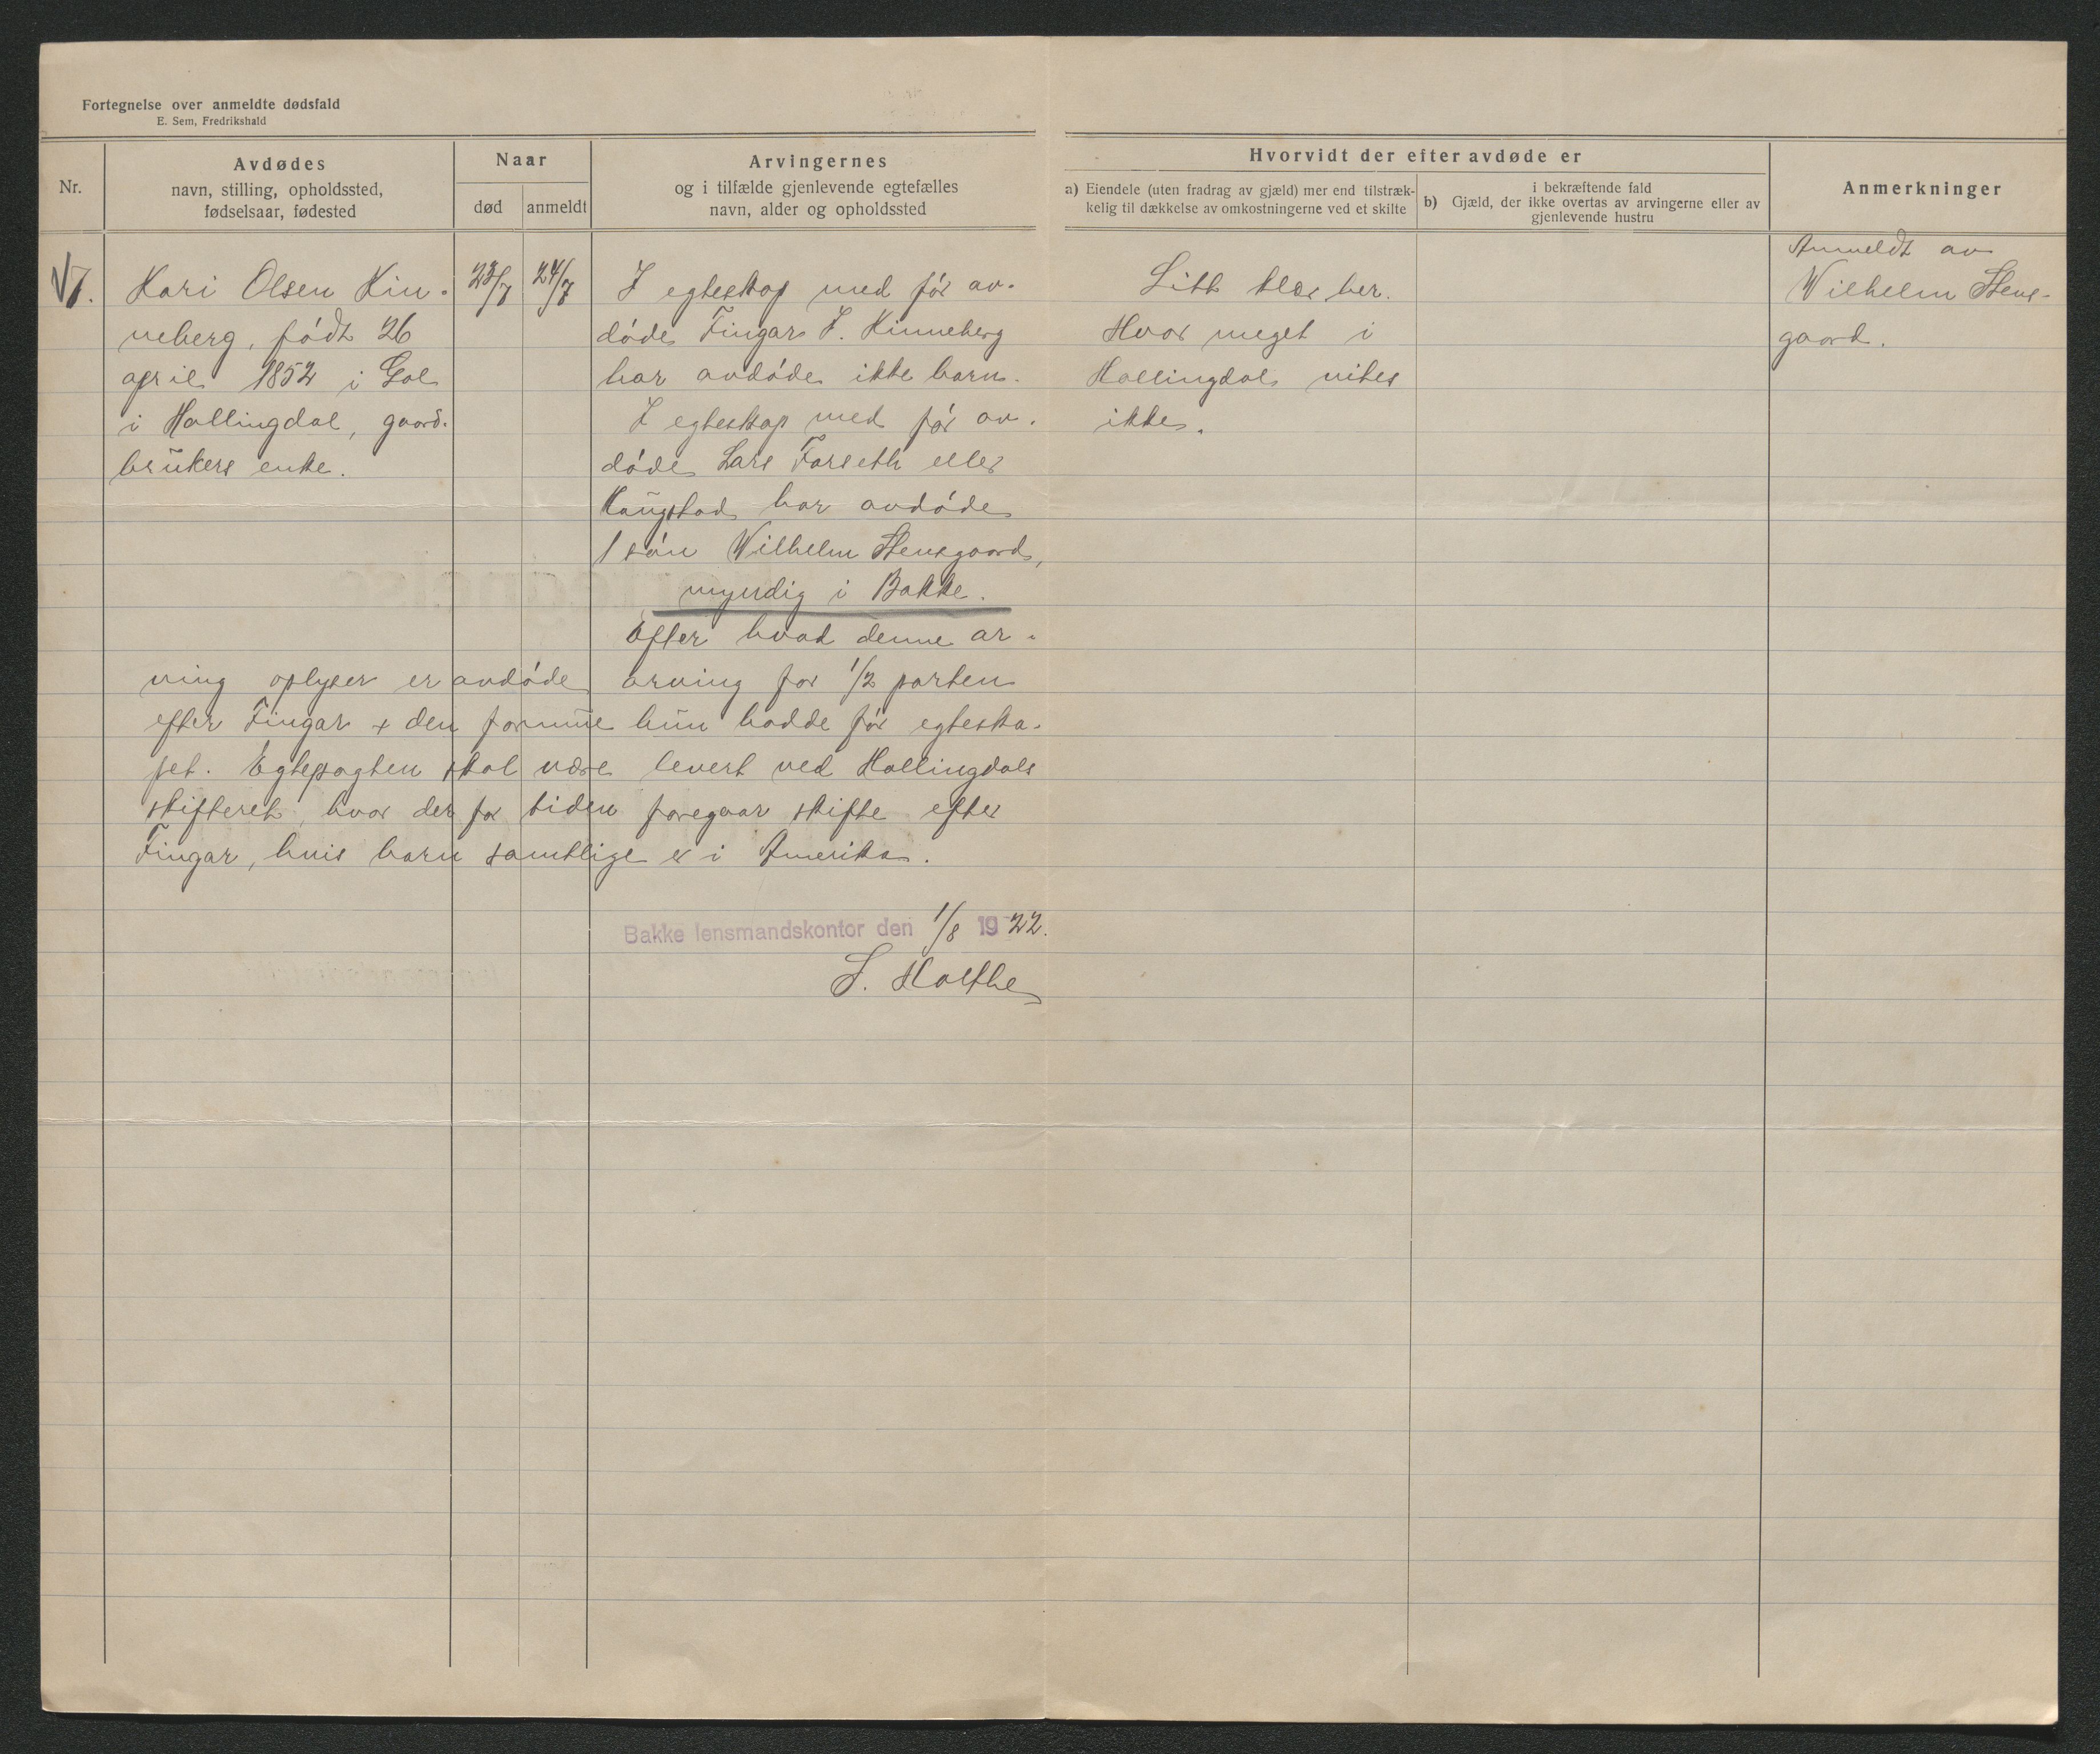 Fortegnelse over anmeldte dødsfald
E. Sem, Fredrikshald
Nr.
Avdødes
navn, stilling, opholdssted,
fødselsaar, fødested
Naar
død
anmeldt
Arvingernes
og i tilfælde gjenlevende egtefælles
navn, alder og opholdssted
Hvorvidt der efter avdøde er
a) Eiendele (uten fradrag av gjæld) mer end tilstræk-
kelig til dækkelse av omkostningerne ved et skifte
i bekræftende fald
b) Gjæld, der ikke overtas av arvingerne eller av
gjenlevende hustru
Anmerkninger
7.
Kari Olsen Kin-
neberg, født 26
april 1852 i Gol
i Hallingdal, gaard-
brukers enke.
23/7
24/7
I egteskap med før av-
døde Fingar J. Kinneberg
har avdøde ikke barn.
I egteskap med før av-
døde Lars Forseth eller
Haugstad har avdøde
1 søn Wilhelm Stensgaard,
myndig i Bakke.
Efter hvad denne ar-
ving oplyser er avdøde arving for 1/2 parten
efter Fingar + den formue hun hadde før egteska-
pet. Egtepagten skal være levert ved Hallingdals
skifteret, hvor der for tiden foregaar skifte efter
Fingar, hvis barn samtlige er i Amerika.
Bakke lensmandskontor den 1/8 1922.
S. Holthe
Litt klær her.
Hvor meget i
Hallingdal vites
ikke.
Anmeldt av
Wilhelm Stens-
gaard.